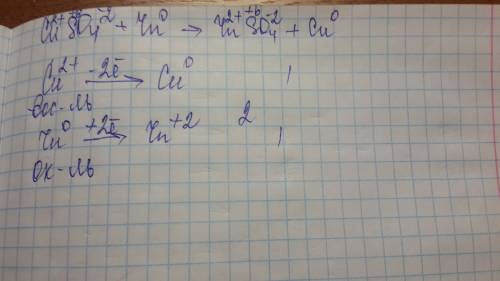 Cu²⁺S⁺⁶O₄⁻² + Zn⁰ → Zn²⁺S⁺⁶O₄⁻² + Cu⁰
Cu²⁺ -2ē → Cu⁰ 1
Вос-ль
Zn⁰ +2ē → Zn⁺² 2 1
Ок-ль